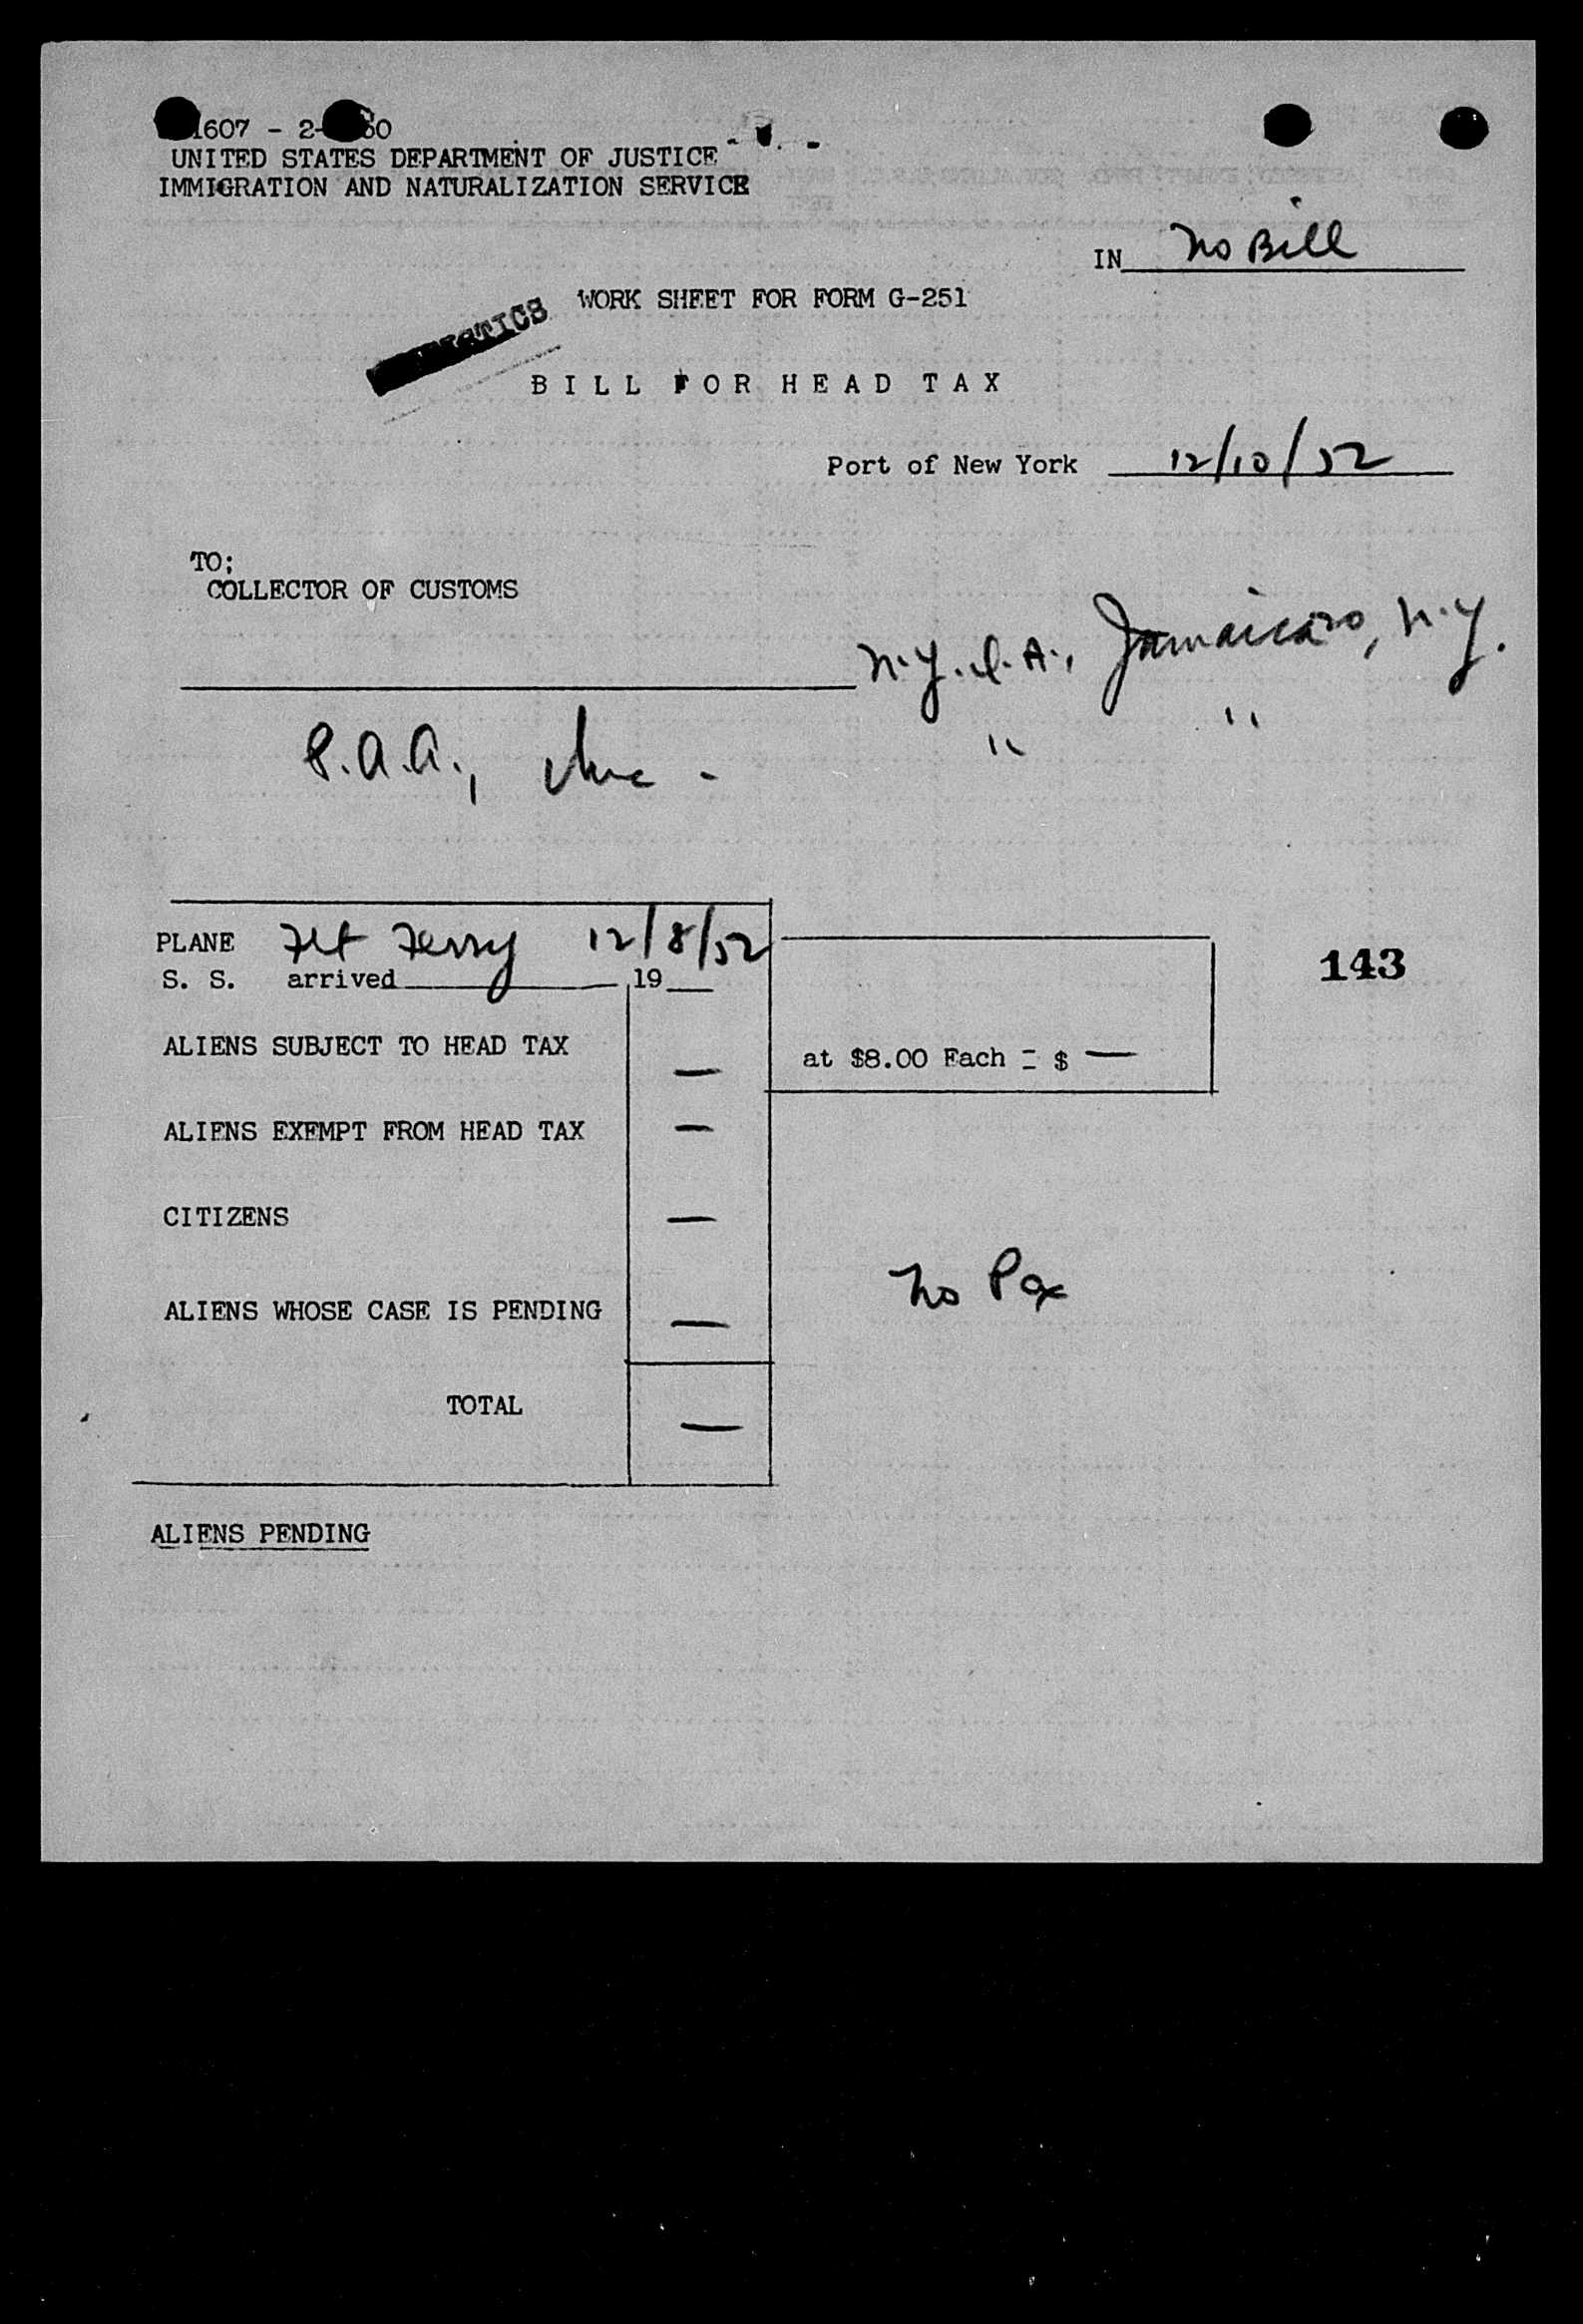 1607 - 2- 60
UNITED STATES DEPARTMENT OF JUSTICE
IMMIGRATION AND NATURALIZATION SERVICE
IN No Bill
WORK SHEET FOR FORM G-251
BILL FOR HEAD TAX
Port of New York 12/10/52
TO;
COLLECTOR OF CUSTOMS
N.Y.I.A., Jamaica, N.Y.
P.A.A., Inc - " "
PLANE Flt Ferry 12/8/52
S. S. arrived 19
143
ALIENS SUBJECT TO HEAD TAX —
at $8.00 Each = $ —
ALIENS EXEMPT FROM HEAD TAX —
CITIZENS —
No Pax
ALIENS WHOSE CASE IS PENDING —
TOTAL —
ALIENS PENDING